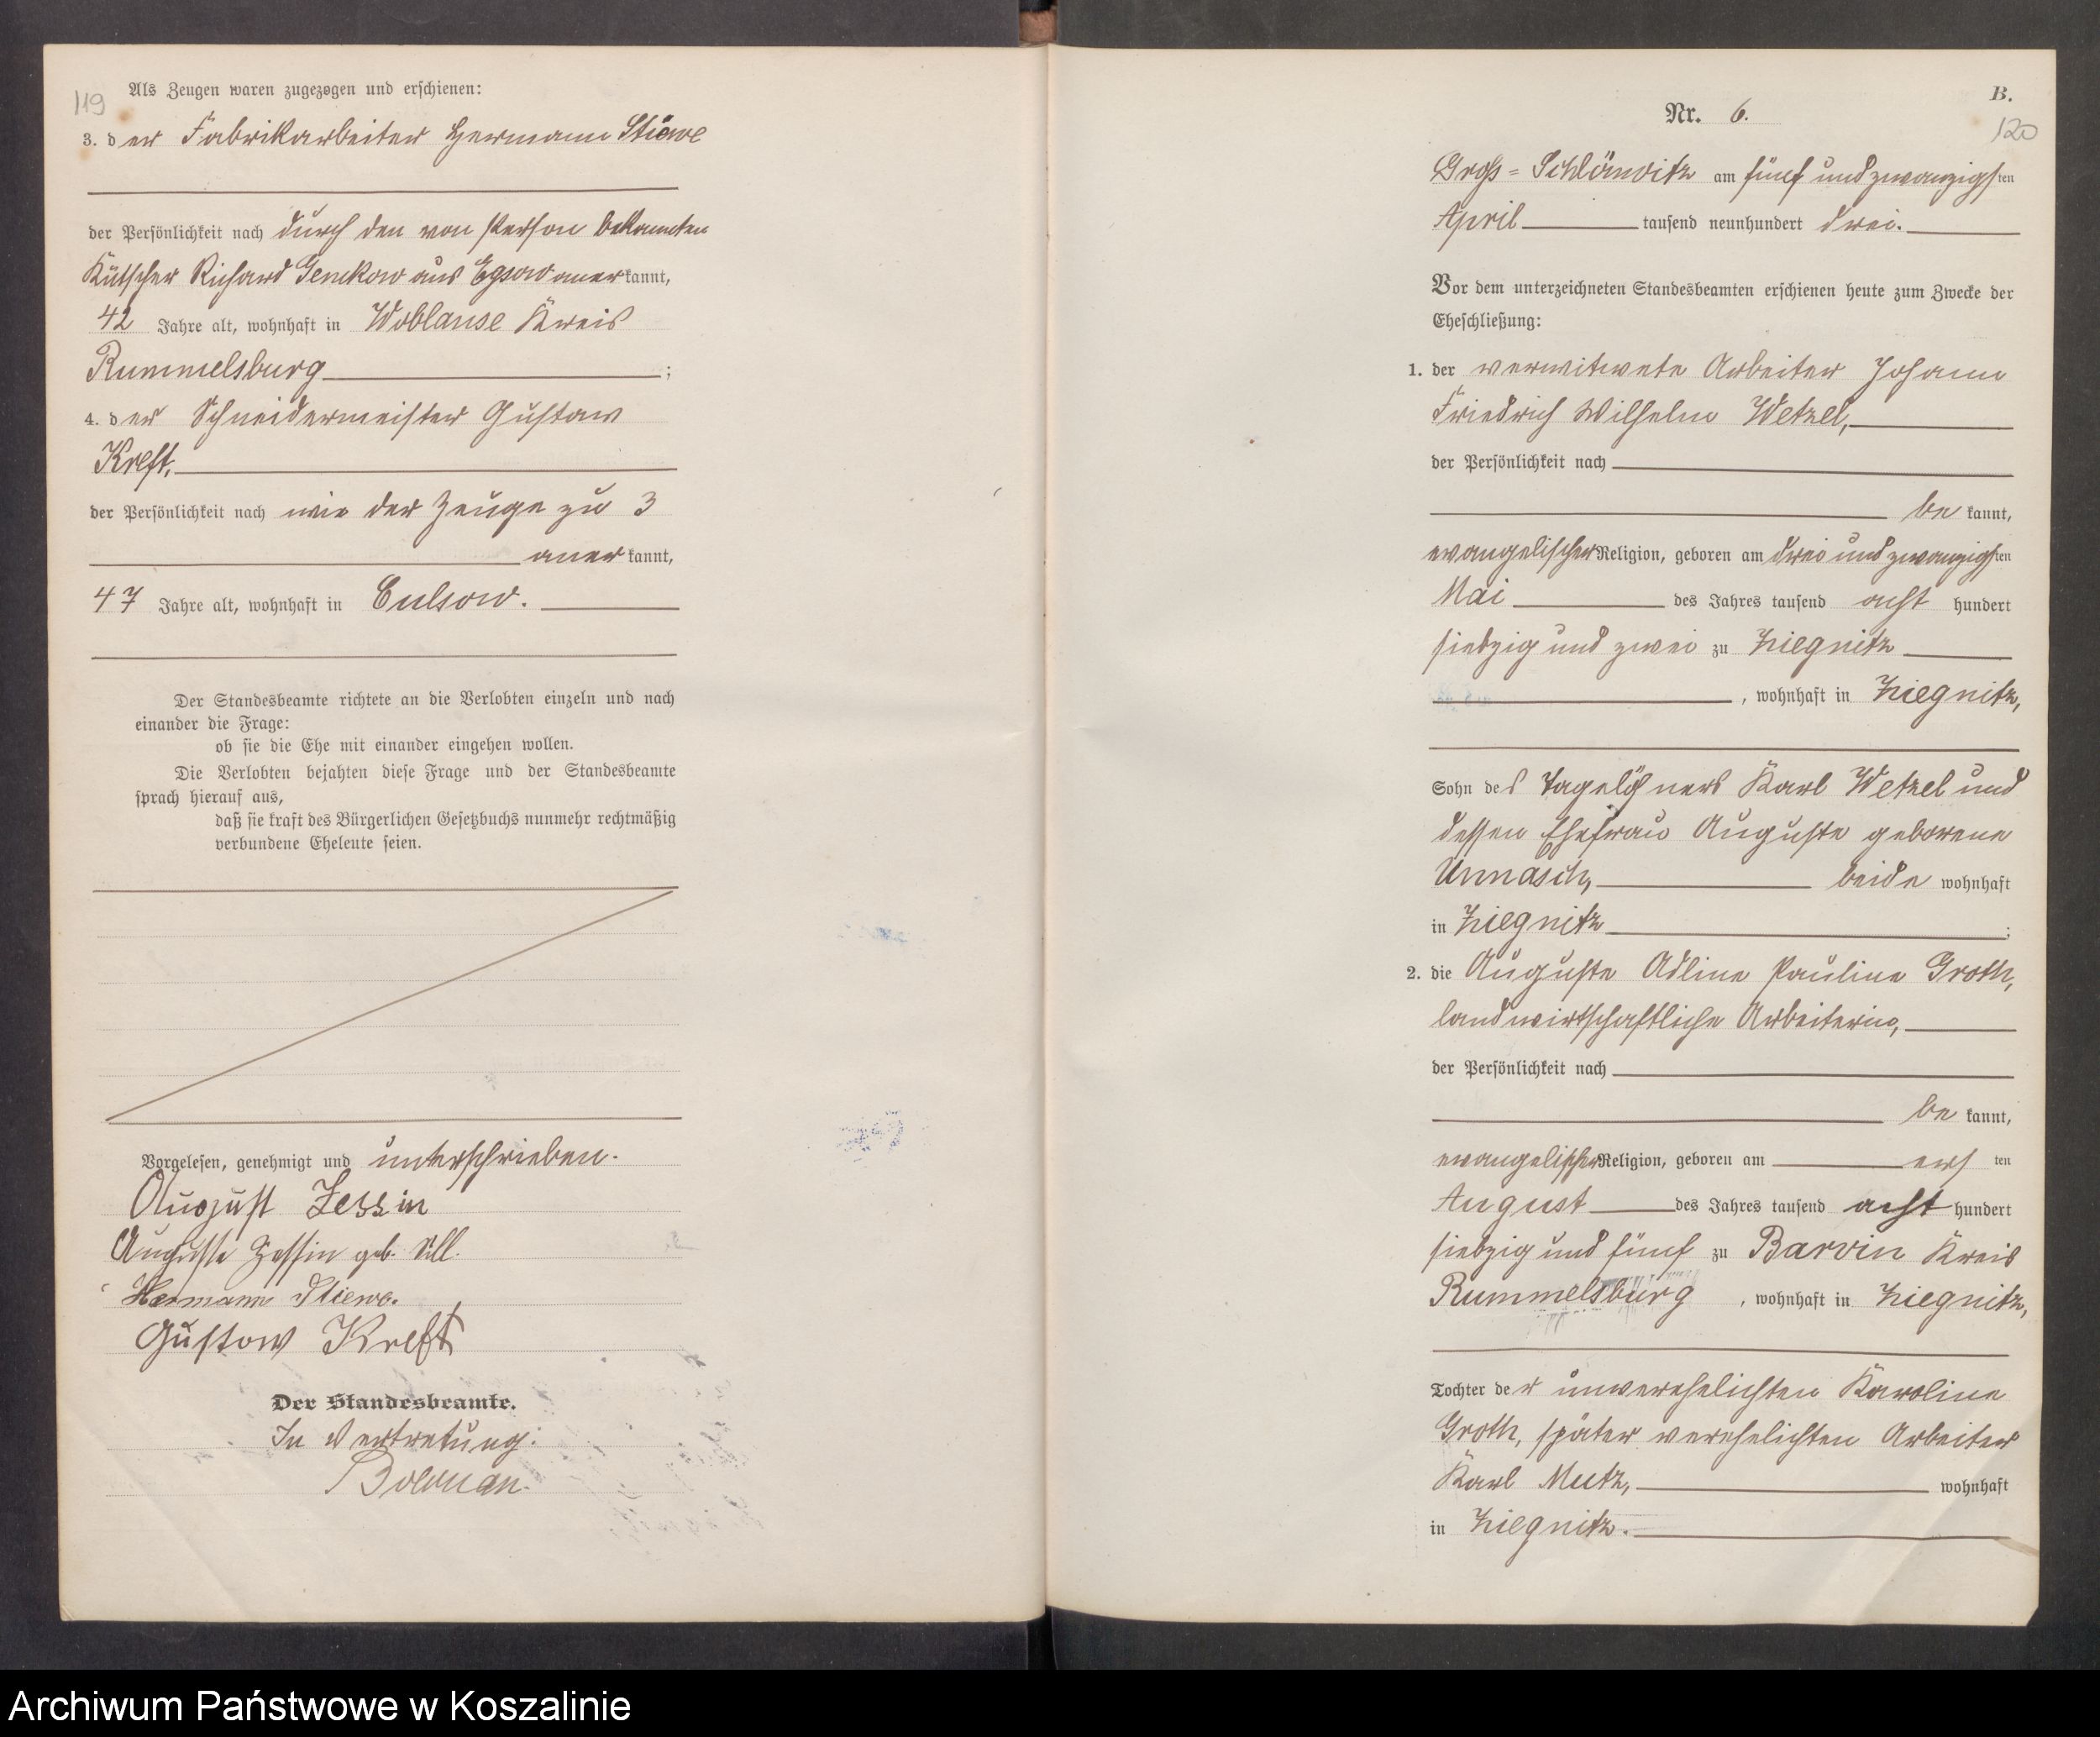 119
Als Zeugen waren zugezogen und erschienen:
3. der Fabrikarbeiter Hermann Stiewe
der Persönlichkeit nach durch den von Person bekannten
Kutscher Richard Genckow aus Egsow anerkannt,
42 Jahre alt, wohnhaft in Woblanse Kreis
Rummelsburg ;
4. der Schneidermeister Gustav
Kreft,
der Persönlichkeit nach wie der Zeuge zu 3
anerkannt,
47 Jahre alt, wohnhaft in Culsow.
Der Standesbeamte richtete an die Verlobten einzeln und nach
einander die Frage:
ob sie die Ehe mit einander eingehen wollen.
Die Verlobten bejahten diese Frage und der Standesbeamte
sprach hierauf aus,
daß sie kraft des Bürgerlichen Gesetzbuchs nunmehr rechtmäßig
verbundene Eheleute seien.
Vorgelesen, genehmigt und unterschrieben.
August Zessin
Auguste Zessin geb.
Hermann Stiewe.
Gustow Kreft
Der Standesbeamte.
In Vertretung:
B.
Nr. 6.
120
Groß-Schlönwitz am fünf und zwanzigsten
April tausend neunhundert drei.
Vor dem unterzeichneten Standesbeamten erschienen heute zum Zwecke der
Eheschließung:
1. der verwitwete Arbeiter Johann
Friedrich Wilhelm Wetzel,
der Persönlichkeit nach
bekannt,
evangelischer Religion, geboren am drei und zwanzigsten
Mai des Jahres tausend acht hundert
siebzig und zwei zu Ziegnitz
, wohnhaft in Ziegnitz,
Sohn des Tagelöhners Karl Wetzel und
dessen Ehefrau Auguste geborene
Unnasch, beide wohnhaft
in Ziegnitz ;
2. die Auguste Adline Pauline Groth,
landwirtschaftliche Arbeiterin,
der Persönlichkeit nach
bekannt,
evangelischer Religion, geboren am ersten
August des Jahres tausend acht hundert
siebzig und fünf zu Barvin Kreis
Rummelsburg , wohnhaft in Ziegnitz,
Tochter der unverehelichten Karoline
Groth, später verehelichten Arbeiter
Karl Mutz, wohnhaft
in Ziegnitz.
Archiwum Państwowe w Koszalinie